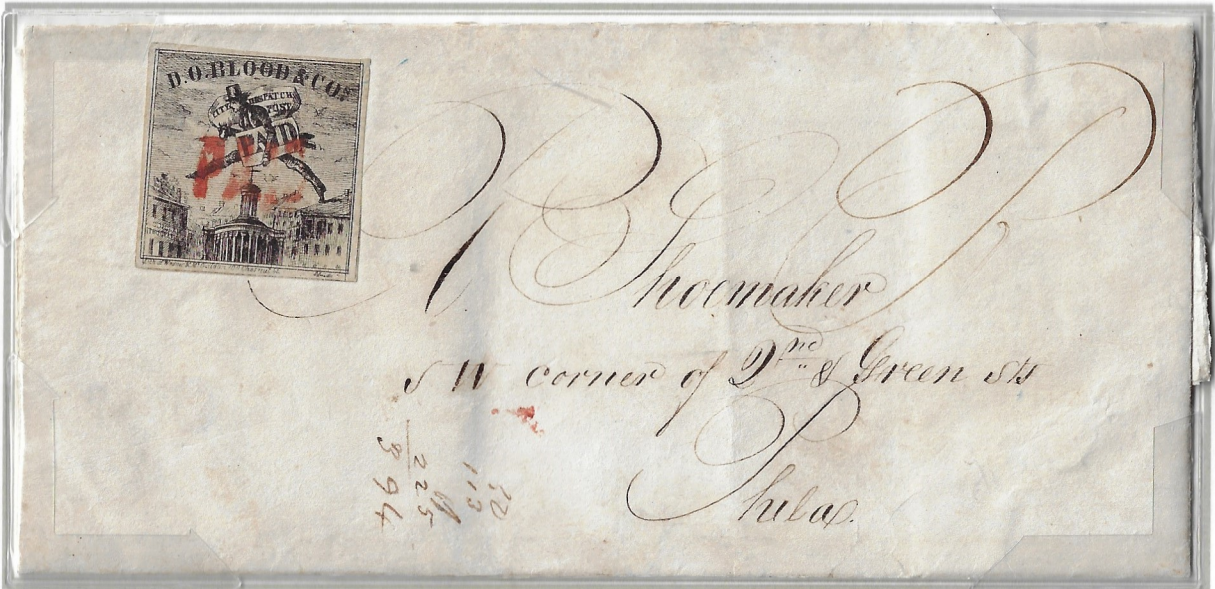 D.O.BLOOD & COs
CITY DESPATCH
POST
PAID
Shoemaker
S W corner of 2nd & Green sts
Phila
225
394